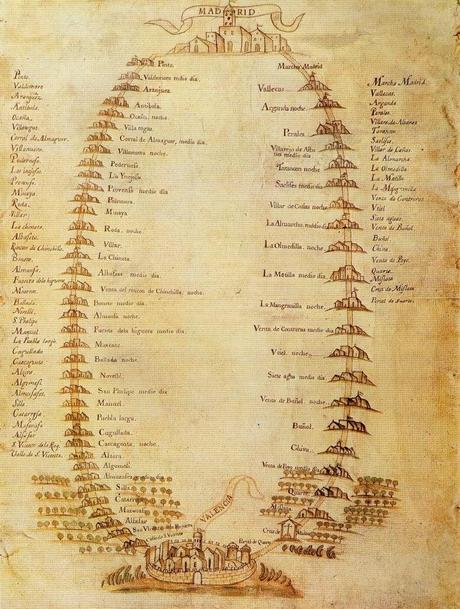 MADRID
Pinto.
Valdemoro
Aranjuez
Antibola.
Ocaña,
Villatogas.
Corral de Almaguer.
Villamaior.
Pedernosa.
Provensio.
Minaya
Roda.
Villar.
La chineta.
Albasete.
Rincon de Chinchilla.
Bonete.
Almansa.
Fuente dela higuera
Moxente.
Ballada.
Novelè.
S. Phelipe
Manuel
La Puebla larga
Cugullada.
Alcira
Algemesi.
Almosafes.
Silla
Catarroja
Masanasa
Alfafar
S. Vicente de la Roq.
Calle de S. Vicente.
Pinto.
Valdemoro medio dia.
Aranjuez
Antibola.
Ocaña, noche.
Villa togas.
Corral de Almaguer, medio dia.
Villamaior noche.
Pedernosa.
Provensio medio dia
Minaya
Roda. noche.
Villar.
La Chineta
Albasete medio dia.
Venta del rincon de Chinchilla. noche.
Bonete medio dia.
Almansa noche.
Fuente dela higuera medio dia.
Moxente.
Ballada noche.
Novelè.
San Phelipe medio dia
Manuel.
Puebla larga
Cugullada.
Alzira.
Algemesi
Almosafes
Silla
Catarroja
Masanasa
Alfafar
Marcha Madrid
Vallecas
Arganda noche.
Perales
medio dia
Tarancon noche
Saelises medio dia
Villar de Cañas noche
La Almarcha medio dia
La Olmedilla. noche
La Motilla medio dia
La Mangranilla noche.
Venta de Contreras medio dia
Vtiel. noche.
Siete agua medio dia
Venta de Buñol. noche
Buñol.
Chiva.
Quarte
Mislata
VALENCIA
Marcha Madrid.
Vallecas.
Arganda
Perales
Tarancon
Saelises
Villar de Cañas
La Almarcha
La Olmedilla
La Motilla
Venta de Contreras
Vtiel
Siete aguas
Venta de Buñol
Buñol
Chiva.
Venta de Poyo.
Quarte.
Mislata
Cruz de Mislata